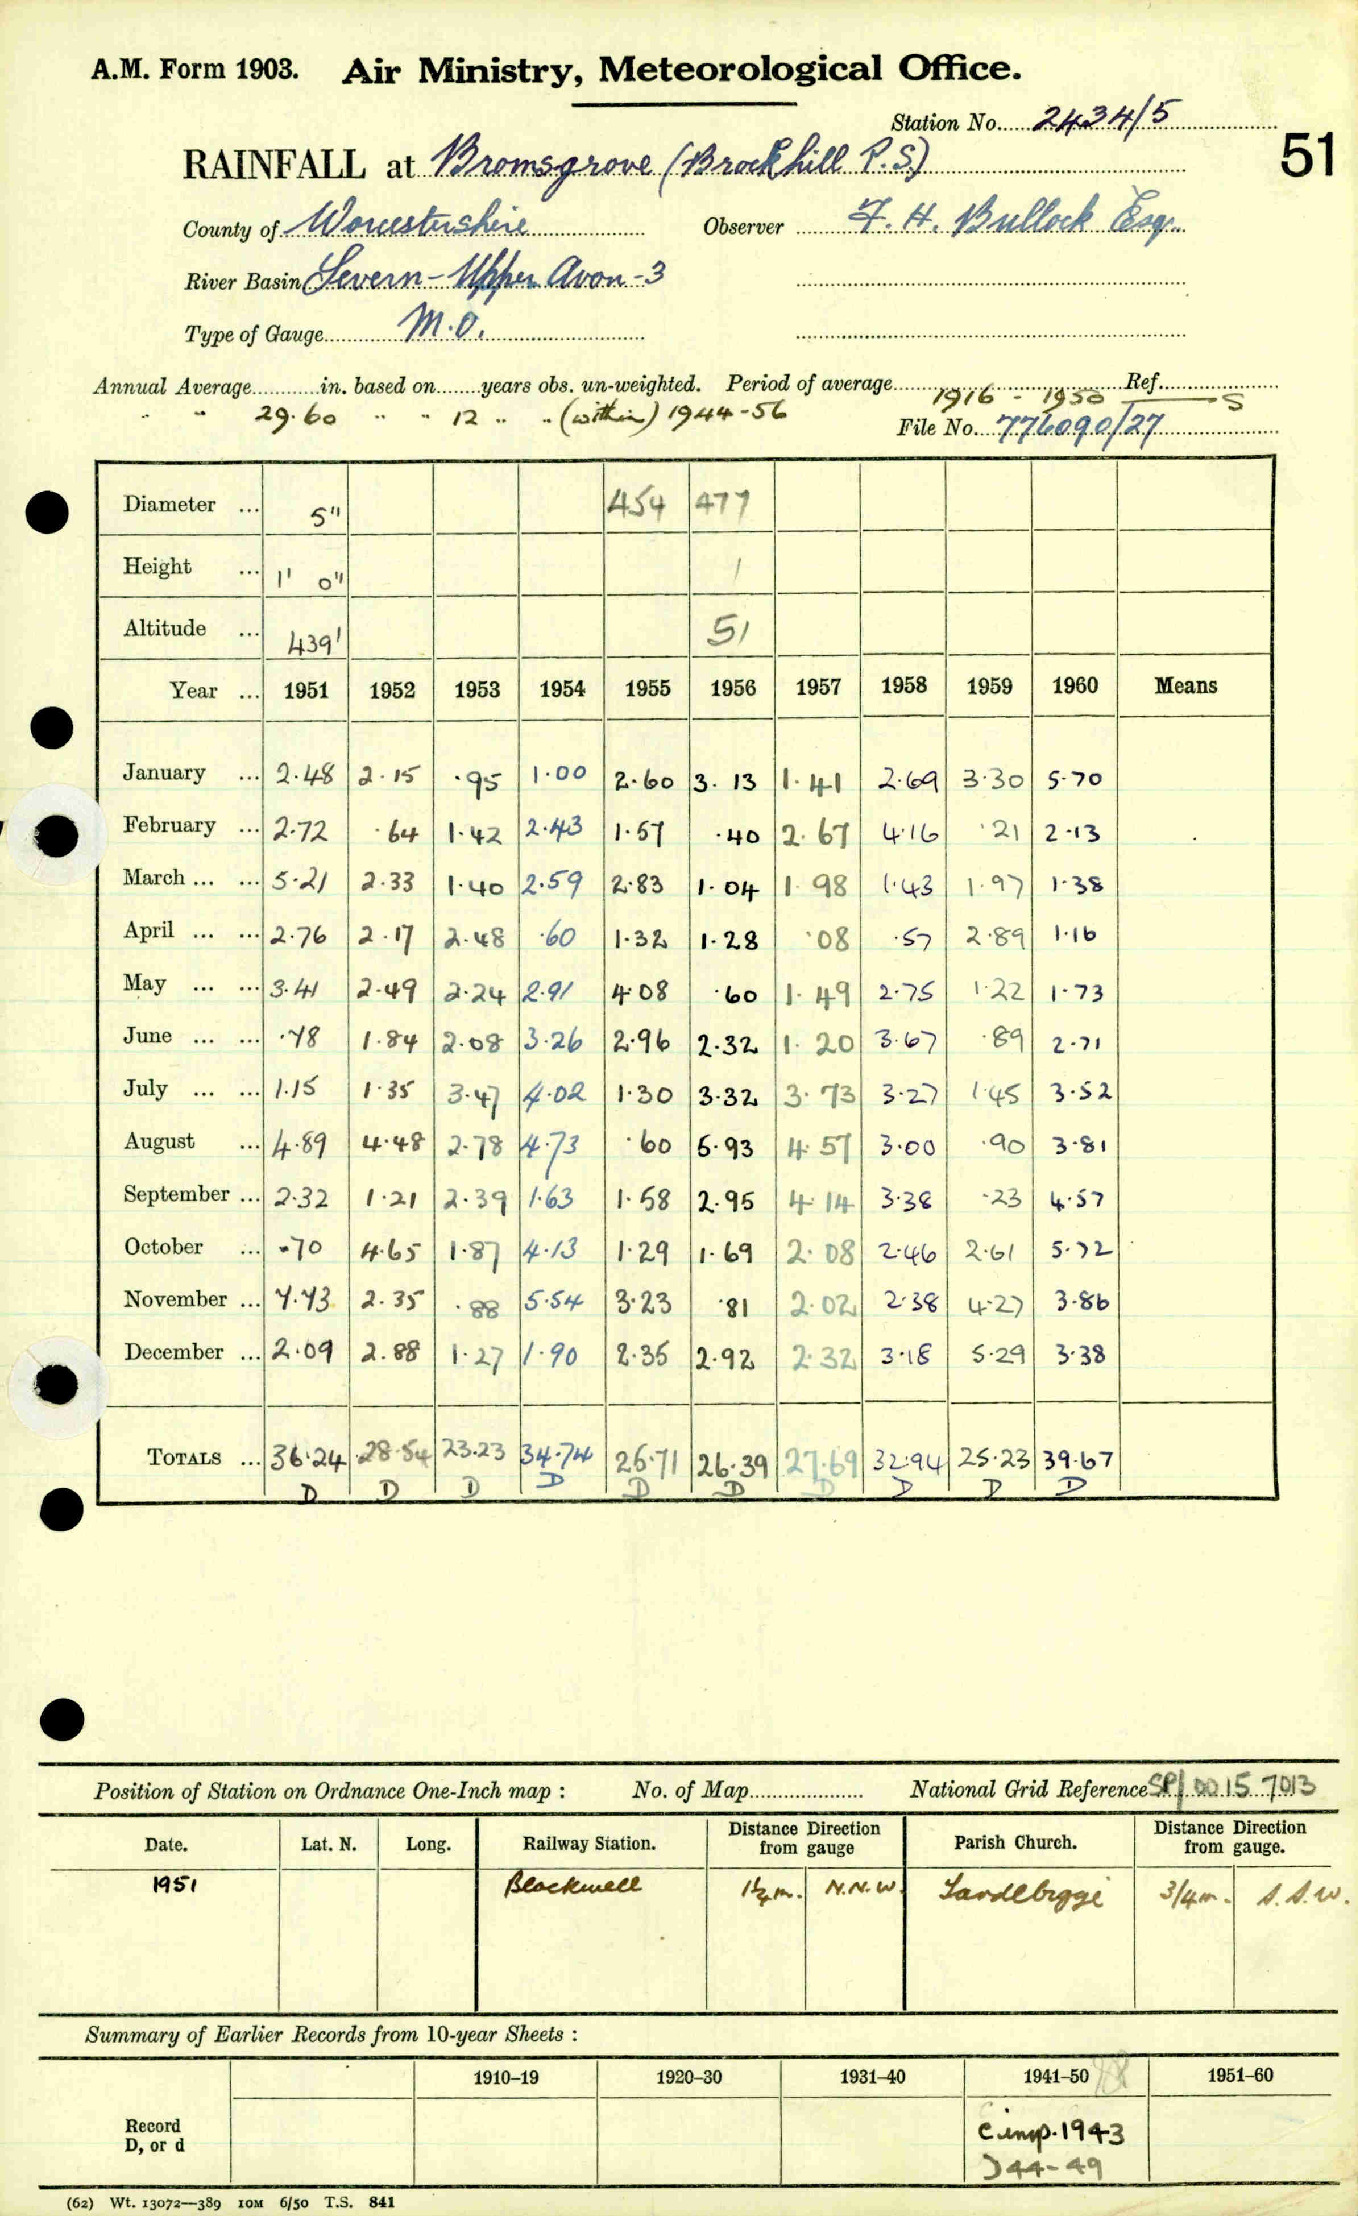 A.M. Form 1903. Air Ministry, Meteorological Office.
Station No. 2434/5
51
RAINFALL at Bromsgrove (Brockhill P.S.)
County of Worcestershire Observer F. H. Bullock Esq.
River Basin Severn - Upper Avon - 3
Type of Gauge M.O.
Annual Average in. based on years obs. un-weighted. Period of average 1916 - 1950 Ref. S
" " 29.60 " " 12 " " (within) 1944-56 File No. 776090/27
Diameter ... 5" 454 477
Height ... 1' 0" 1
Altitude ... 439' 51
Year ... 1951 1952 1953 1954 1955 1956 1957 1958 1959 1960 Means
January ... 2.48 2.15 .95 1.00 2.60 3.13 1.41 2.69 3.30 5.70
February ... 2.72 .64 1.42 2.43 1.57 .40 2.67 4.16 .21 2.13
March ... ... 5.21 2.33 1.40 2.59 2.83 1.04 1.98 1.43 1.97 1.38
April ... ... 2.76 2.17 2.48 .60 1.32 1.28 .08 .57 2.89 1.16
May ... ... 3.41 2.49 2.24 2.91 4.08 .60 1.49 2.75 1.22 1.73
June ... ... .78 1.84 2.08 3.26 2.96 2.32 1.20 3.67 .89 2.71
July ... ... 1.15 1.35 3.47 4.02 1.30 3.32 3.73 3.27 1.45 3.52
August ... 4.89 4.48 2.78 4.73 .60 5.93 4.57 3.00 .90 3.81
September ... 2.32 1.21 2.39 1.63 1.58 2.95 4.14 3.38 .23 4.57
October ... .70 4.65 1.87 4.13 1.29 1.69 2.08 2.46 2.61 5.72
November ... 7.73 2.35 .88 5.54 3.23 .81 2.02 2.38 4.27 3.86
December ... 2.09 2.88 1.27 1.90 2.35 2.92 2.32 3.18 5.29 3.38
TOTALS ... 36.24 28.54 23.23 34.74 25.71 26.39 27.69 32.94 25.23 39.67
D D D D D D D D D D
Position of Station on Ordnance One-Inch map : No. of Map National Grid Reference SP/ 00 15 7013
Date. Lat. N. Long. Railway Station. Distance Direction from gauge Parish Church. Distance Direction from gauge.
1951 Blackwell 1½m. N.N.W. Tardebigge 3/4m. S.S.W.
Summary of Earlier Records from 10-year Sheets :
1910-19 1920-30 1931-40 1941-50 1951-60
Record D, or d
c imp. 1943
D 44-49
(62) Wt. 13072—389 10M 6/50 T.S. 841